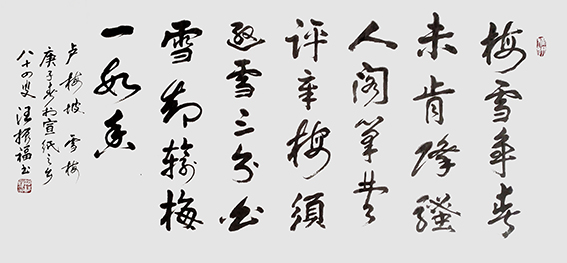 梅雪争春
未肯降騷
人阁筆费
评章梅須
逊雪三分白
雪却輸梅
一段香
卢梅坡 雪梅
庚子春於宣纸之乡
八十四叟 汪振福书